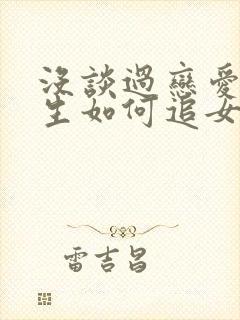 沒談過戀愛
生如何追女
雷吉昌